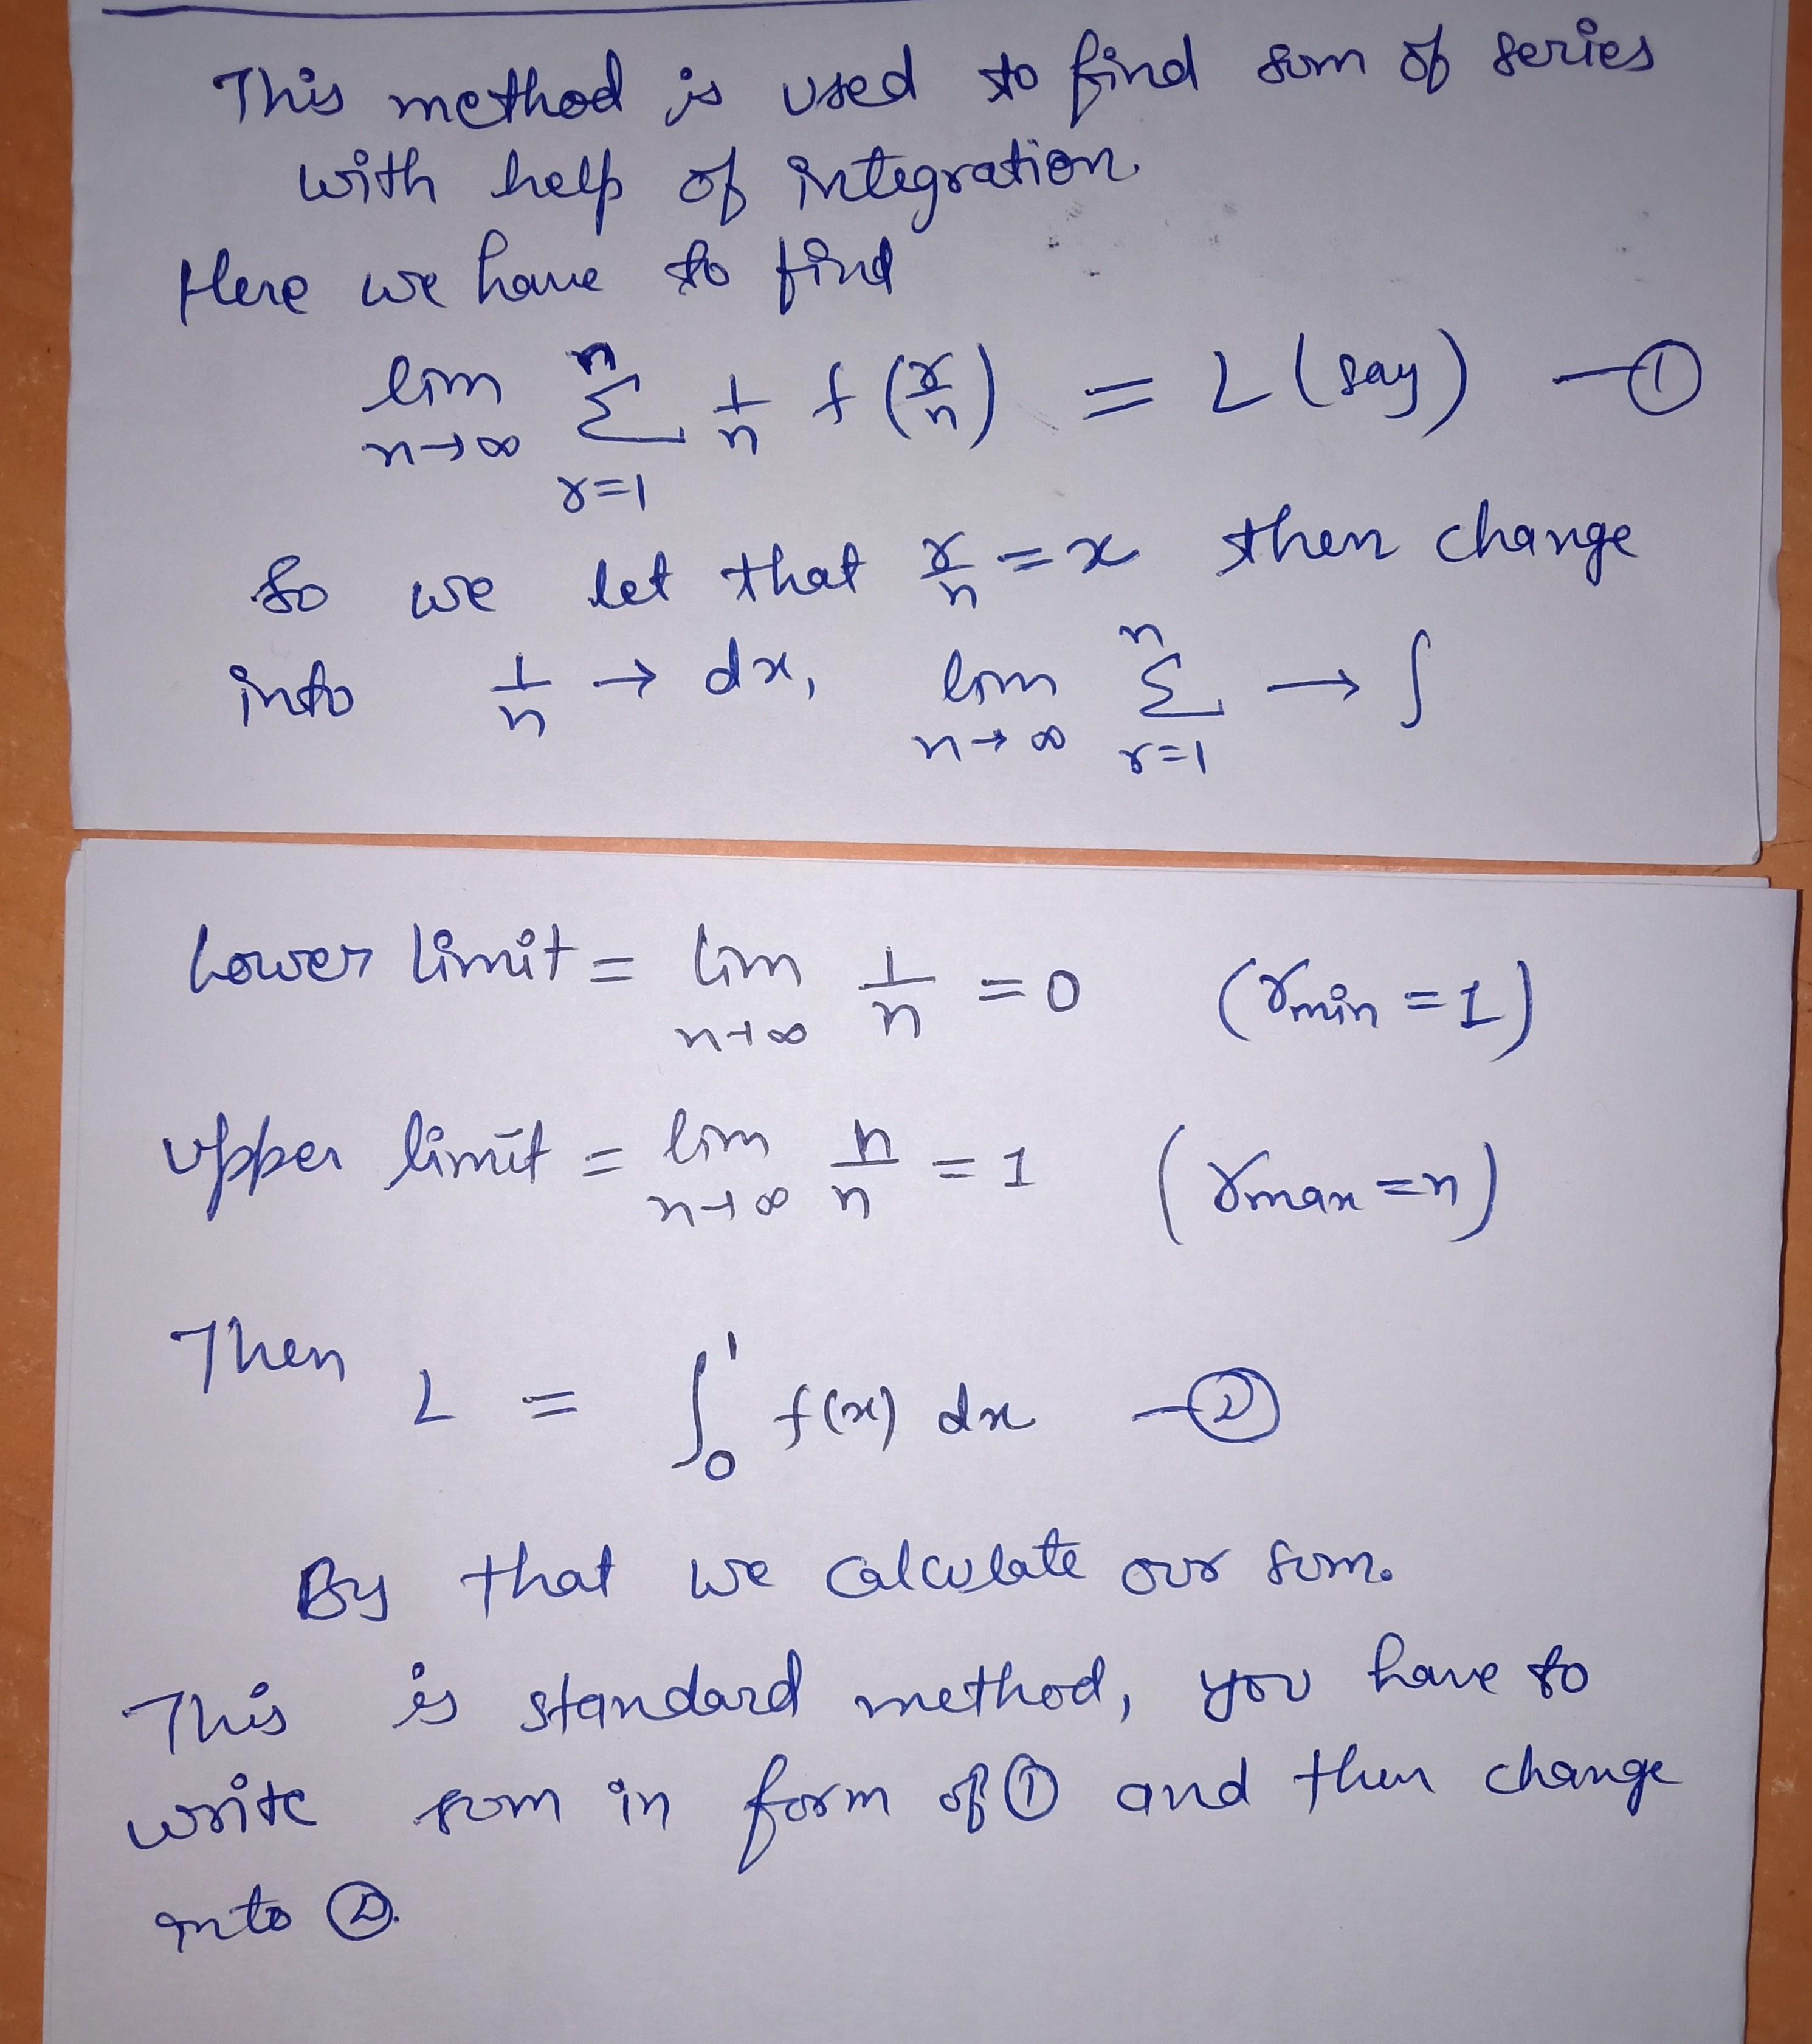 This method is used to find sum of series
with help of integration.
Here we have to find
lim n→∞ n Σ r=1 1/n f(r/n) = L (say) —①
So we let that r/n = x then change
into 1/n → dx, lim n→∞ n Σ r=1 → ∫
Lower limit = lim n→∞ 1/n = 0 (rmin = 1)
upper limit = lim n→∞ n/n = 1 (rmax = n)
Then
L = ∫₀¹ f(x) dx —②
By that we calculate our sum.
This is standard method, you have to
write sum in form of ① and then change
into ②.